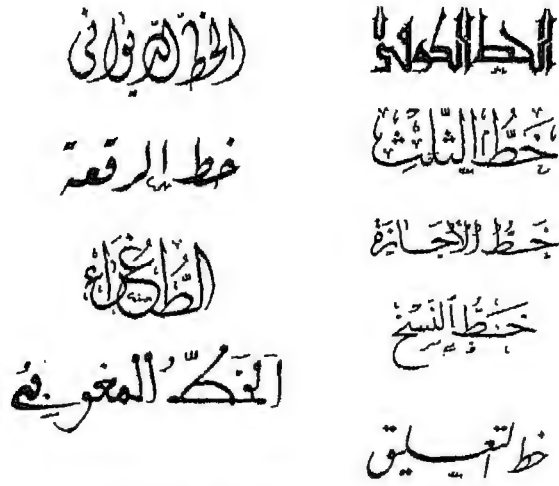 الخط الكوفي
خَطُّ الثُّلُثِ
خَطُّ الأجَازَة
خَطُّ النَّسْخ
خط التعليق
الخط الديواني
خط الرقعة
الطُّغْرَاء
الخطُّ المغربي